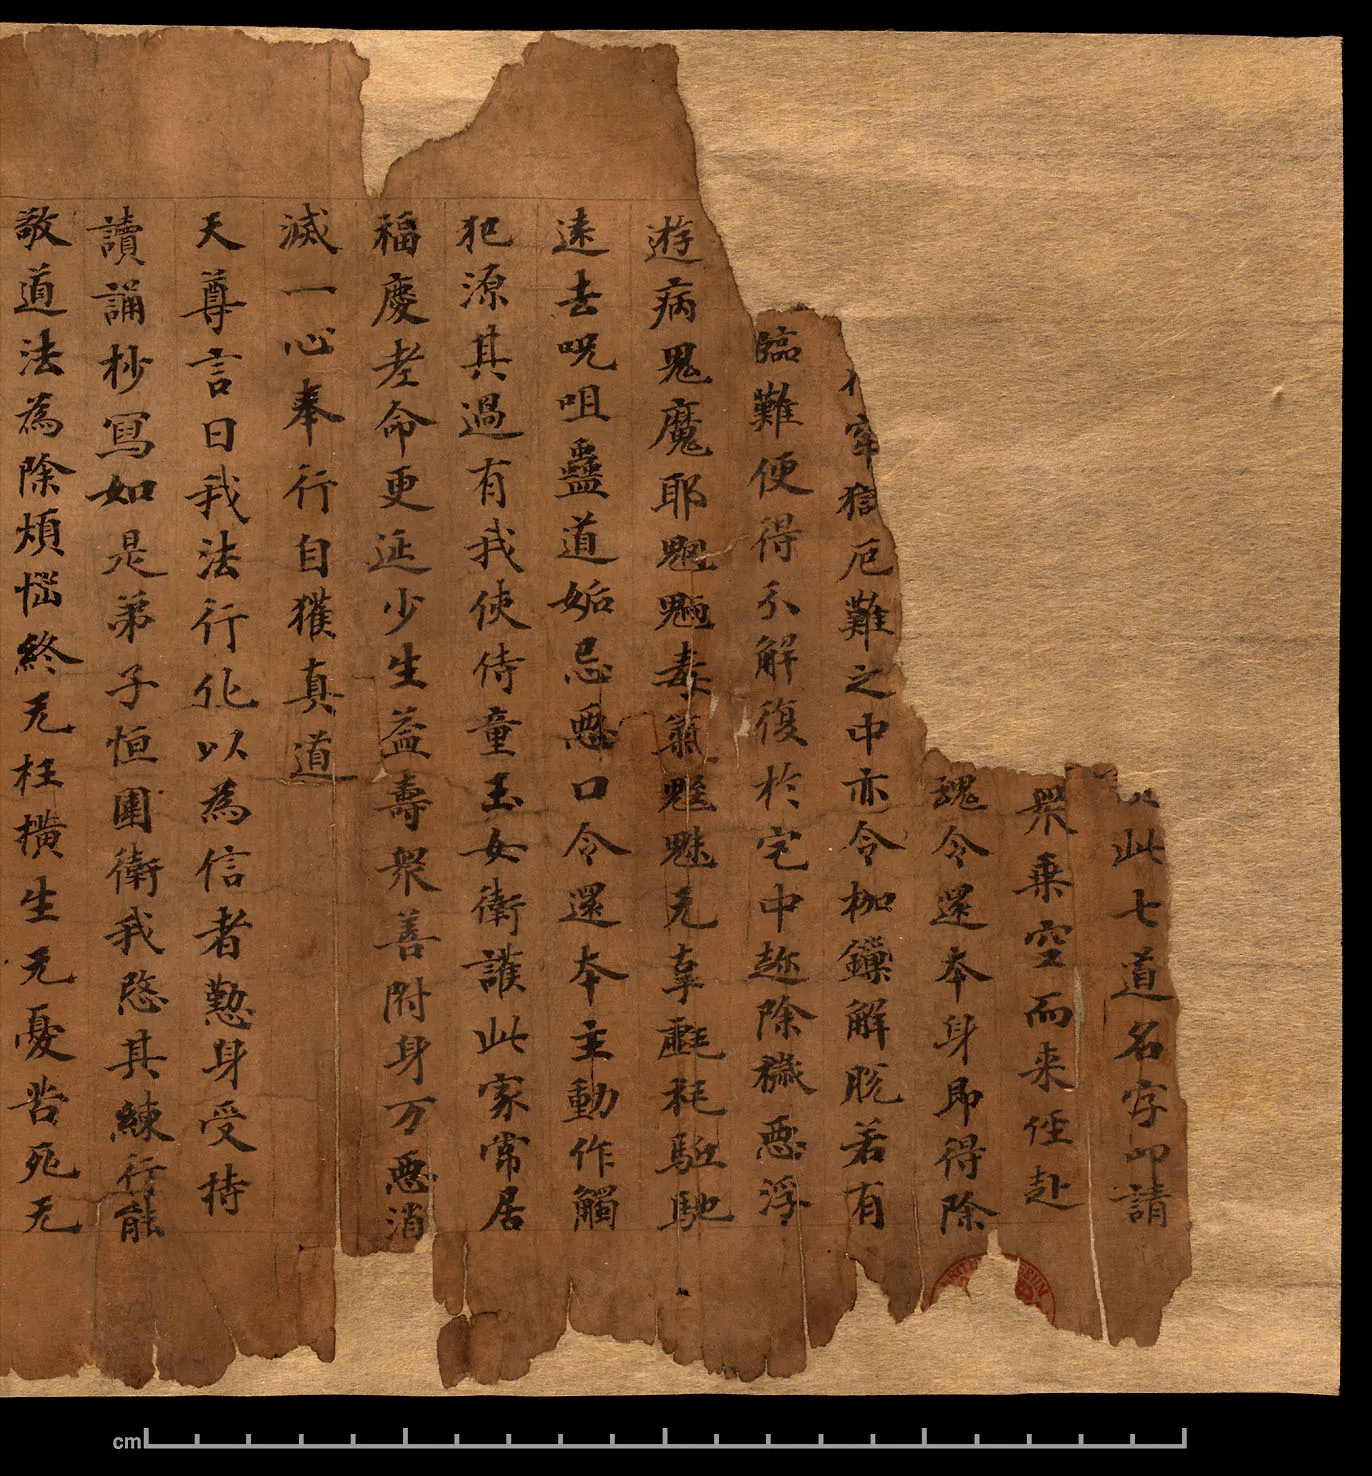 此七道名字即請
衆乗空而来侄赴
魂令還本身即得除
牢獄厄難之中亦令枷鏁解脫若有
臨難便得尒解復扵宅中趂除穢惡浮
遊病鬼魔耶魍魎毒氣魑魅无辜𪎭耗駈馳
遠去呪咀蠱道妬忌惡口令還本主動作觸
犯源其過有我使侍童玉女衛護此家常居
福慶考命更延少生益壽衆善附身万惡消
滅一心奉行自獲真道
天尊言曰我法行化以為信者懃身受持
讀誦抄寫如是弟子恒圍衛我愍其練行能
敬道法為除煩惱終无枉橫生无憂苦死无